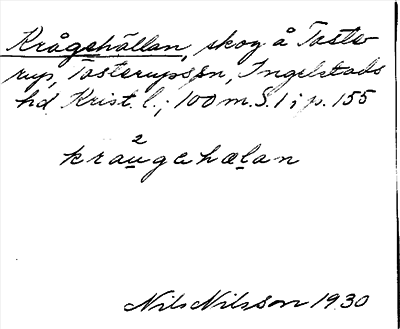 Krågehällan, skog å Toste-
rup, Tosterups sn, Ingelstads
hd Krist. l.; 100 m. S. 1 ; p. 155
2
kraugahælan
Nils Nilsson 1930